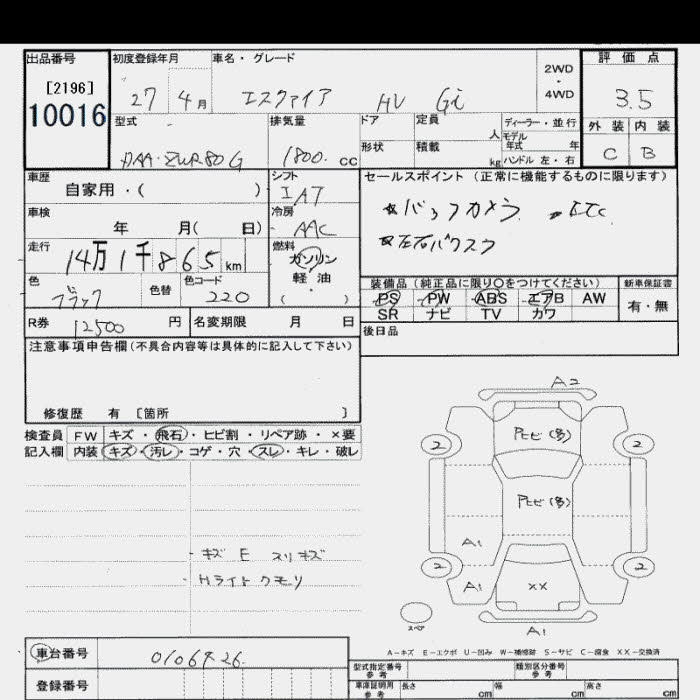 出品番号 初度登録年月 車名・グレード 2WD・4WD 評価点
[2196] 10016 27 4月 エスクァイア HV Gi 3.5
型式 排気量 ドア 定員 人 ディーラー・並行 外装 内装
DAA-ZWR80G 1800 cc 形状 積載 kg モデル年式 年 ハンドル 左・右 C B
車歴 自家用・( ) シフト IAT セールスポイント (正常に機能するものに限ります)
車検 年 月( 日) 冷房 AAC ☆バックカメラ ETC
走行 14万1千865km 燃料 ガソリン 軽油・( )
色 ブラック 色替 色コード 220
装備品 (純正品に限り○をつけてください) 新車保証書
PS PW ABS エアB AW 有・無
SR ナビ TV カワ
R券 12500 円 名変期限 月 日 後日品
注意事項申告欄(不具合内容等は具体的に記入して下さい)
修復歴 有 [箇所 ]
検査員 FW キズ・飛石・ヒビ割・リペア跡・×要
記入欄 内装 キズ・汚レ・コゲ・穴・スレ・キレ・破レ
A2
2 Pヒビ(多) 2
Pヒビ(多)
A1
2 2
A1 XX A1
スペア A1
・キズ E スリキズ
・Hライトクモリ
A-キズ E-エクボ U-凹み W-補修跡 S-サビ C-腐食 XX-交換済
車台番号 0106926
登録番号
型式指定番号 参考 類別区分番号 参考
車庫証明用 参考 長さ cm 幅 cm 高さ cm